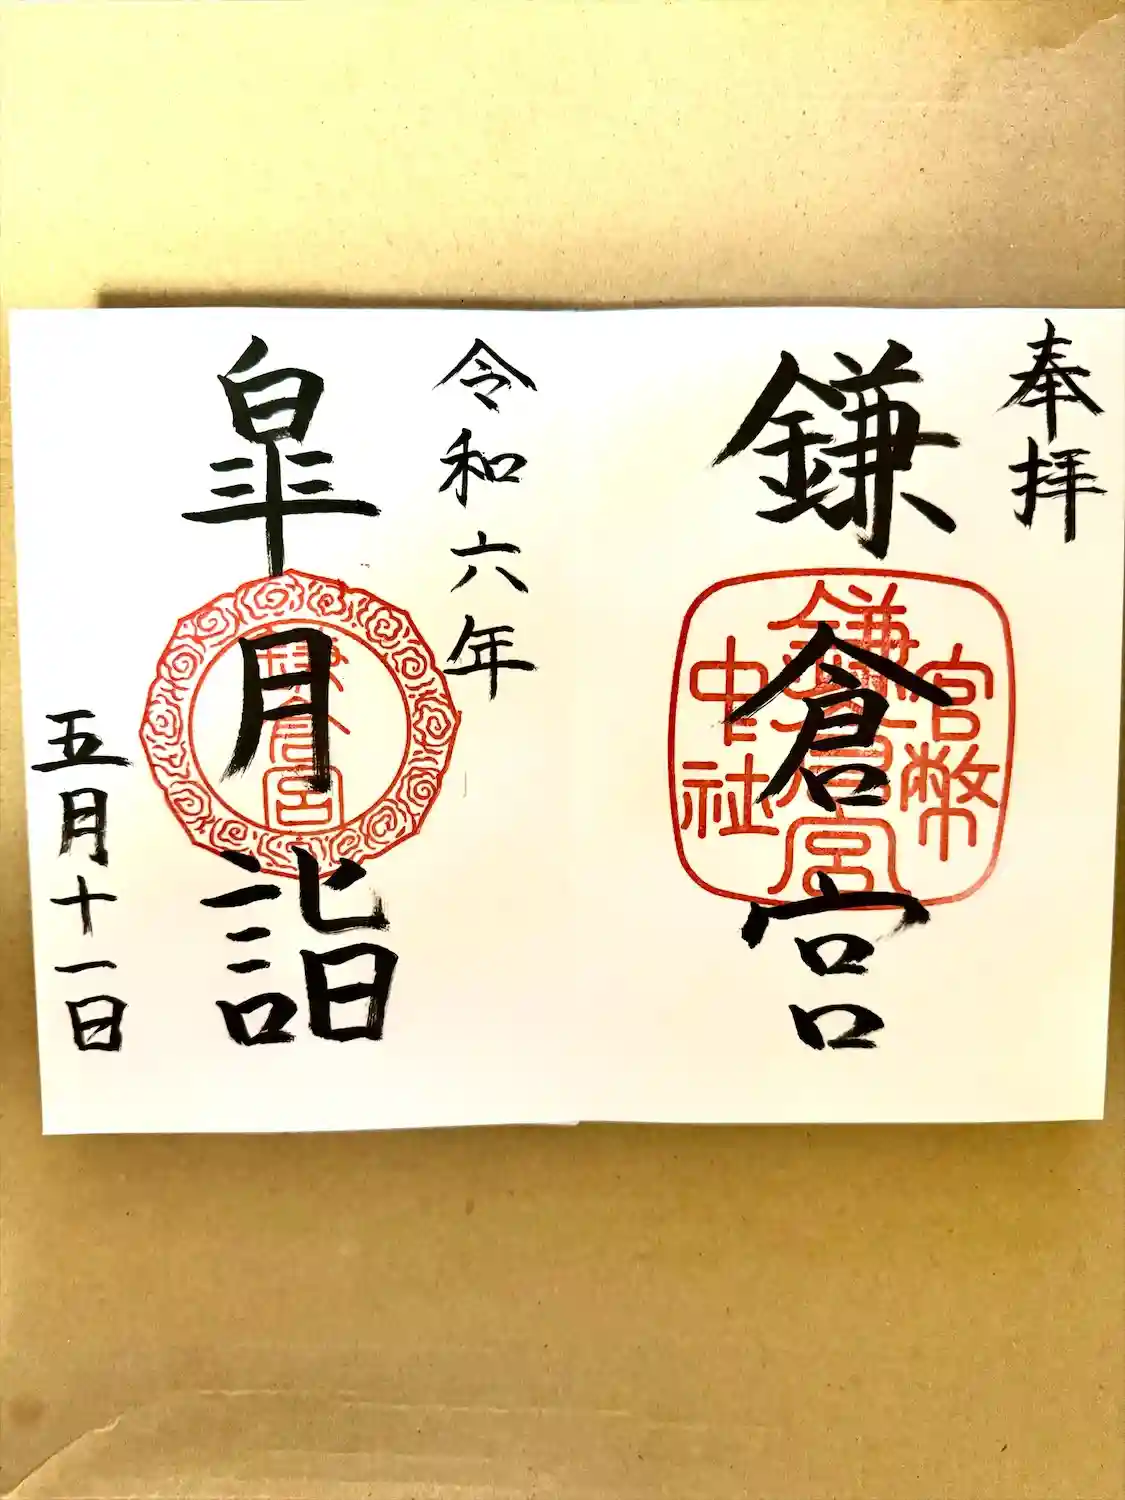 奉拝
鎌倉宮
鎌倉宮
官幣
中社
令和六年
皐月詣
鎌倉宮
五月十一日